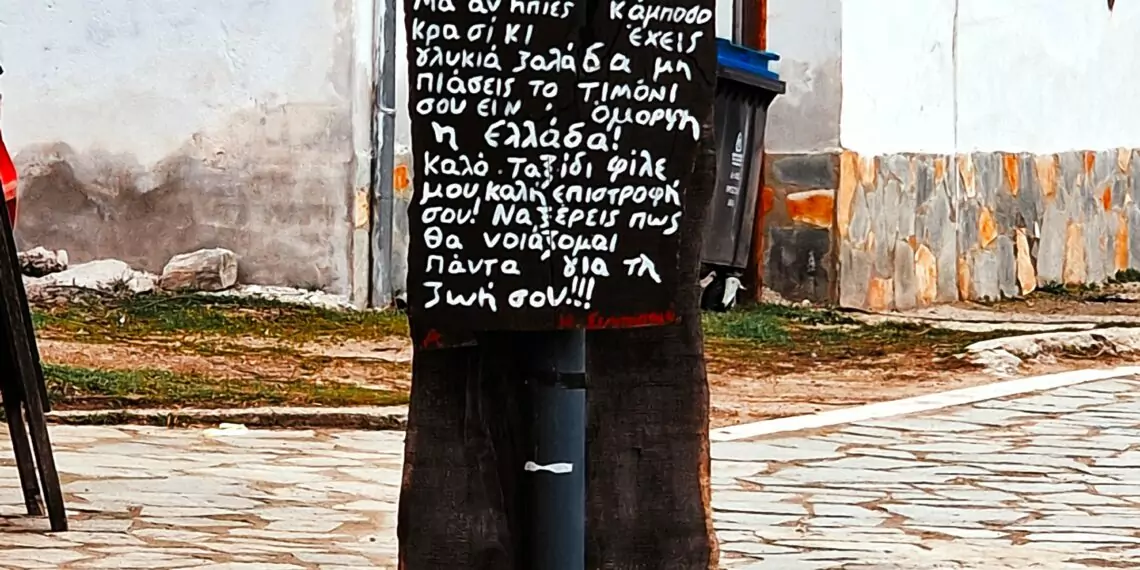 Μα αν ήπιες κάμποσο
κρασί κι έχεις
γλυκιά ζαλάδα μη
πιάσεις το τιμόνι
σου ειν' όμορφη
η Ελλάδα!
Καλό ταξίδι φίλε
μου, καλή επιστροφή
σου! Να ξέρεις πως
θα νοιάζομαι
πάντα για τη
ζωή σου!!!